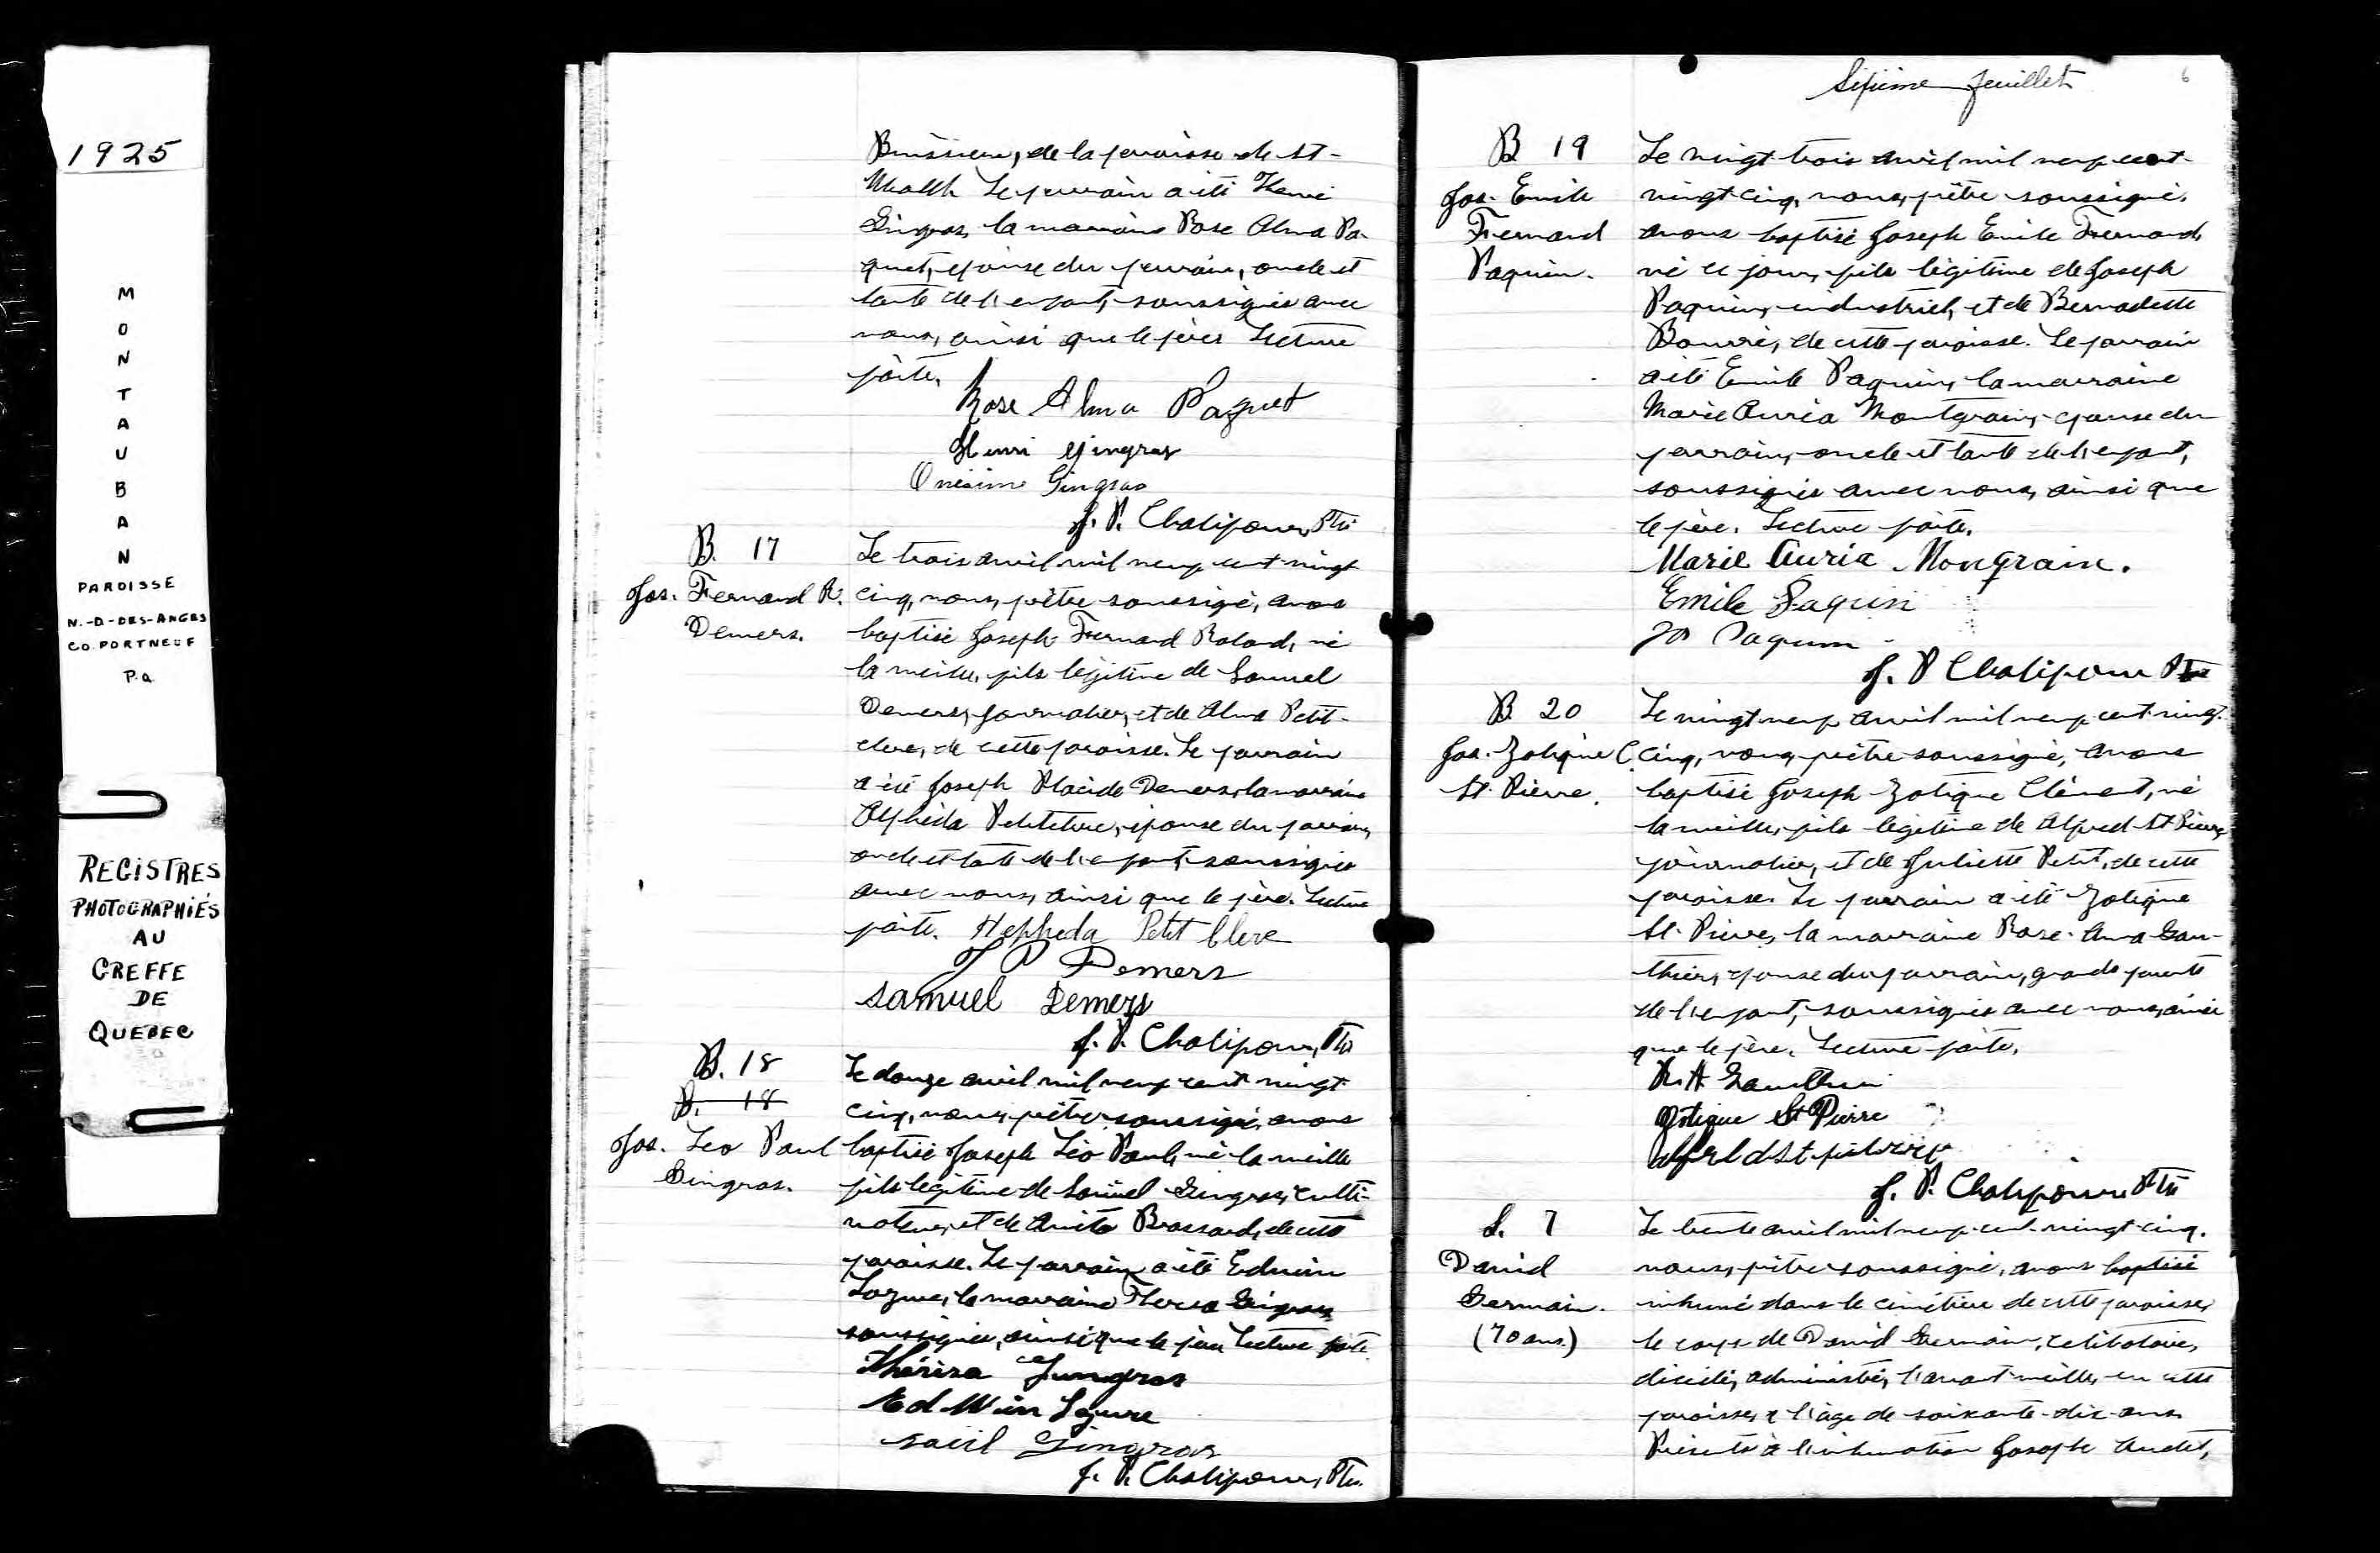 1925
M
O
N
T
A
U
B
A
N
PAROISSE
N.-D-DES-ANGES
CO. PORTNEUF
P.Q.
REGISTRES
PHOTOGRAPHIÉS
AU
GREFFE
DE
QUEBEC
de la paroisse de St-
Le parrain a été Henri
Gingras, la marraine Rose Alma Pa-
quet, épouse du parrain, oncle et
tante de l'enfant, soussignés avec
nous, ainsi que le père. Lecture
faite.
Rose Alma Paquet
Henri Gingras
Onésime Gingras
J. P. Chalifour, Ptre
B. 17
Jos. Fernand R.
Demers.
Le trois avril mil neuf cent vingt
cinq, nous, prêtre soussigné, avons
baptisé Joseph Fernand Roland, né
la veille, fils légitime de Samuel
Demers, journalier, et de Alma Petit-
clerc, de cette paroisse. Le parrain
a été Joseph Placide Demers, la marraine
Alphéda Petitclerc, épouse du parrain,
oncle et tante de l'enfant, soussignés
avec nous, ainsi que le père. Lecture
faite. Hepheda Petit Clerc
J P Demers
Samuel Demers
J. P. Chalifour, Ptre
B. 18
B. 18
Jos. Léo Paul
Gingras.
Le douze avril mil neuf cent vingt
cinq, nous, prêtre soussigné, avons
baptisé Joseph Léo Paul, né la veille
fils légitime de Gingras, culti-
vateur, et de Anita Brossard, de cette
paroisse. Le parrain a été Edwin
la marraine Gingras
soussignés, ainsi que le père. Lecture faite.
Thérèsa Gingras
Edwin
Gingras
J. P. Chalifour, Ptre.
Sixième feuillet
6
B 19
Jos. Emile
Fernand
Paquin.
Le vingt trois avril mil neuf cent-
vingt-cinq, nous, prêtre soussigné,
avons baptisé Joseph Emile Fernand,
né ce jour, fils légitime de Joseph
Paquin, industriel, et de Bernadette
de cette paroisse. Le parrain
a été Emile Paquin, la marraine
Marie Auria Montgrain, épouse du
parrain, oncle et tante de l'enfant,
soussignés avec nous, ainsi que
le père. Lecture faite.
Marie Auria Mongrain.
Emile Paquin
Jos Paquin
J. P Chalifour Ptre
B. 20
Jos. Zotique C.
St. Pierre.
Le vingt neuf avril mil neuf cent vingt-
cinq, nous, prêtre soussigné, avons
baptisé Joseph Zotique Clément, né
la veille, fils légitime de Alfred St Pierre,
journalier, et de Juliette Petit, de cette
paroisse. Le parrain a été Zotique
St. Pierre, la marraine Rose-Anna Gau-
thier, épouse du parrain, grands parents
de l'enfant, soussignés avec nous, ainsi
que le père. Lecture faite.
R. A Gauthier
Zotique St Pierre
J. P. Chalifour Ptre
S. 7
David
Germain.
(70 ans.)
Le trente avril mil neuf cent-vingt-cinq.
nous, prêtre soussigné, avons baptisé
inhumé dans le cimetière de cette paroisse,
le corps de David Germain, célibataire,
décédé, administré, l'avant-veille, en cette
paroisse, à l'âge de soixante-dix-ans.
Présents à l'inhumation Joseph Audet,